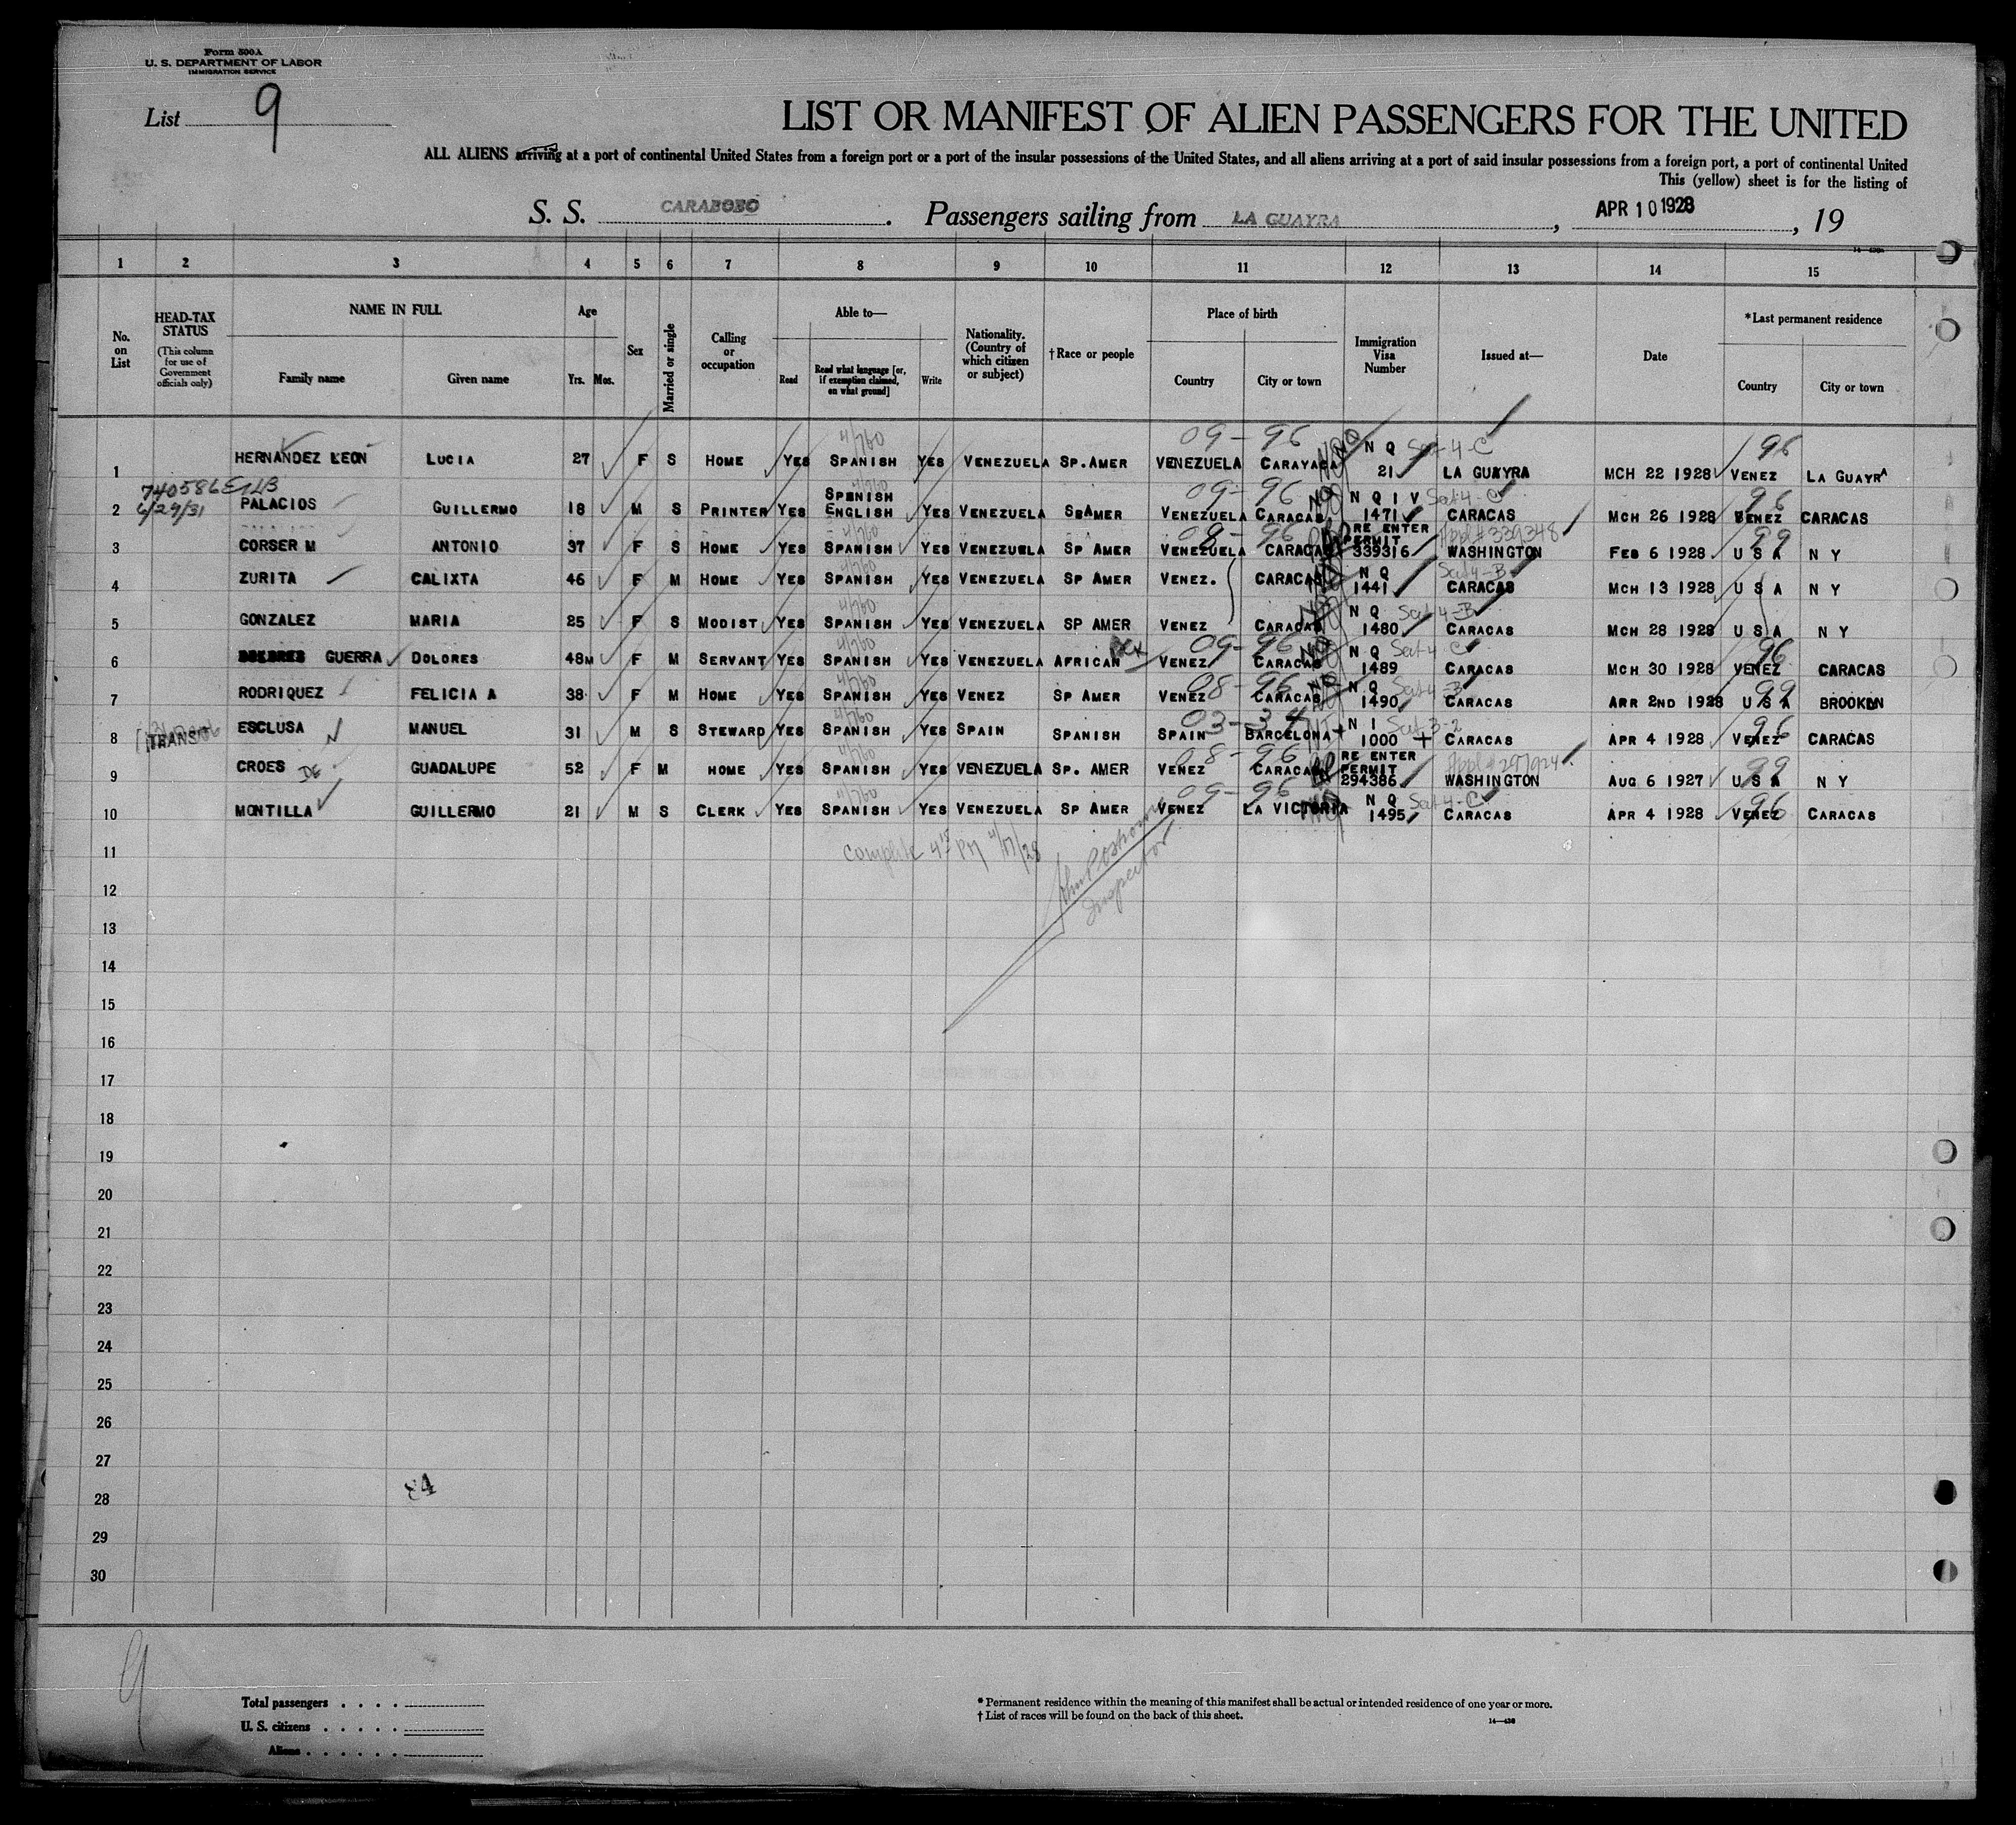 Form 500A
U. S. DEPARTMENT OF LABOR
IMMIGRATION SERVICE
List 9
LIST OR MANIFEST OF ALIEN PASSENGERS FOR THE UNITED
ALL ALIENS arriving at a port of continental United States from a foreign port or a port of the insular possessions of the United States, and all aliens arriving at a port of said insular possessions from a foreign port, a port of continental United
This (yellow) sheet is for the listing of
S. S. CARABOBO. Passengers sailing from LA GUAYRA, APR 10 1928, 19
1 2 3 4 5 6 7 8 9 10 11 12 13 14 15
No. on List
HEAD-TAX STATUS
(This column for use of Government officials only)
NAME IN FULL
Family name Given name
Age
Yrs. Mos.
Sex
Married or single
Calling or occupation
Able to—
Read Read what language [or, if exemption claimed, on what ground] Write
Nationality. (Country of which citizen or subject)
†Race or people
Place of birth
Country City or town
Immigration Visa Number
Issued at—
Date
*Last permanent residence
Country City or town
09-96 96
1 HERNANDEZ LEON LUCIA 27 F S HOME YES SPANISH YES VENEZUELA SP.AMER VENEZUELA CARAYACA N Q 21 LA GUAYRA MCH 22 1928 VENEZ LA GUAYRA
740586
6/29/31
09-96 96
2 PALACIOS GUILLERMO 18 M S PRINTER YES SPENISH ENGLISH YES VENEZUELA SPAMER VENEZUELA CARACAS N Q I V 1471 CARACAS MCH 26 1928 VENEZ CARACAS
08-96 99
3 CORSER M ANTONIO 37 F S HOME YES SPANISH YES VENEZUELA SP AMER VENEZUELA CARACAS RE ENTER PERMIT 339316 Appl # 339348 WASHINGTON FEB 6 1928 U S A N Y
4 ZURITA CALIXTA 46 F M HOME YES SPANISH YES VENEZUELA SP AMER VENEZ. CARACAS N Q 1441 CARACAS MCH 13 1928 U S A N Y
5 GONZALEZ MARIA 25 F S MODIST YES SPANISH YES VENEZUELA SP AMER VENEZ CARACAS N Q 1480 CARACAS MCH 28 1928 U S A N Y
09-96 96
6 GUERRA DOLORES 48M F M SERVANT YES SPANISH YES VENEZUELA AFRICAN VENEZ CARACAS N Q 1489 CARACAS MCH 30 1928 VENEZ CARACAS
08-96 99
7 RODRIQUEZ FELICIA A 38 F M HOME YES SPANISH YES VENEZ SP AMER VENEZ CARACAS N Q 1490 CARACAS APR 2ND 1928 U S A BROOKLN
03-34 96
8 TRANSIT ESCLUSA MANUEL 31 M S STEWARD YES SPANISH YES SPAIN SPANISH SPAIN BARCELONA N I 1000 CARACAS APR 4 1928 VENEZ CARACAS
08-96 99
9 CROES DE GUADALUPE 52 F M HOME YES SPANISH YES VENEZUELA SP. AMER VENEZ CARACAS RE ENTER PERMIT 294386 WASHINGTON AUG 6 1927 U S A N Y
09-96 96
10 MONTILLA GUILLERMO 21 M S CLERK YES SPANISH YES VENEZUELA SP AMER VENEZ LA VICTORIA N Q 1495 CARACAS APR 4 1928 VENEZ CARACAS
11
Complete 4 15 PM 4/17/28
Inspector
12
13
14
15
16
17
18
19
20
21
22
23
24
25
26
27
28
84
29
30
9
Total passengers
U. S. citizens
Aliens
* Permanent residence within the meaning of this manifest shall be actual or intended residence of one year or more.
† List of races will be found on the back of this sheet.
14—436